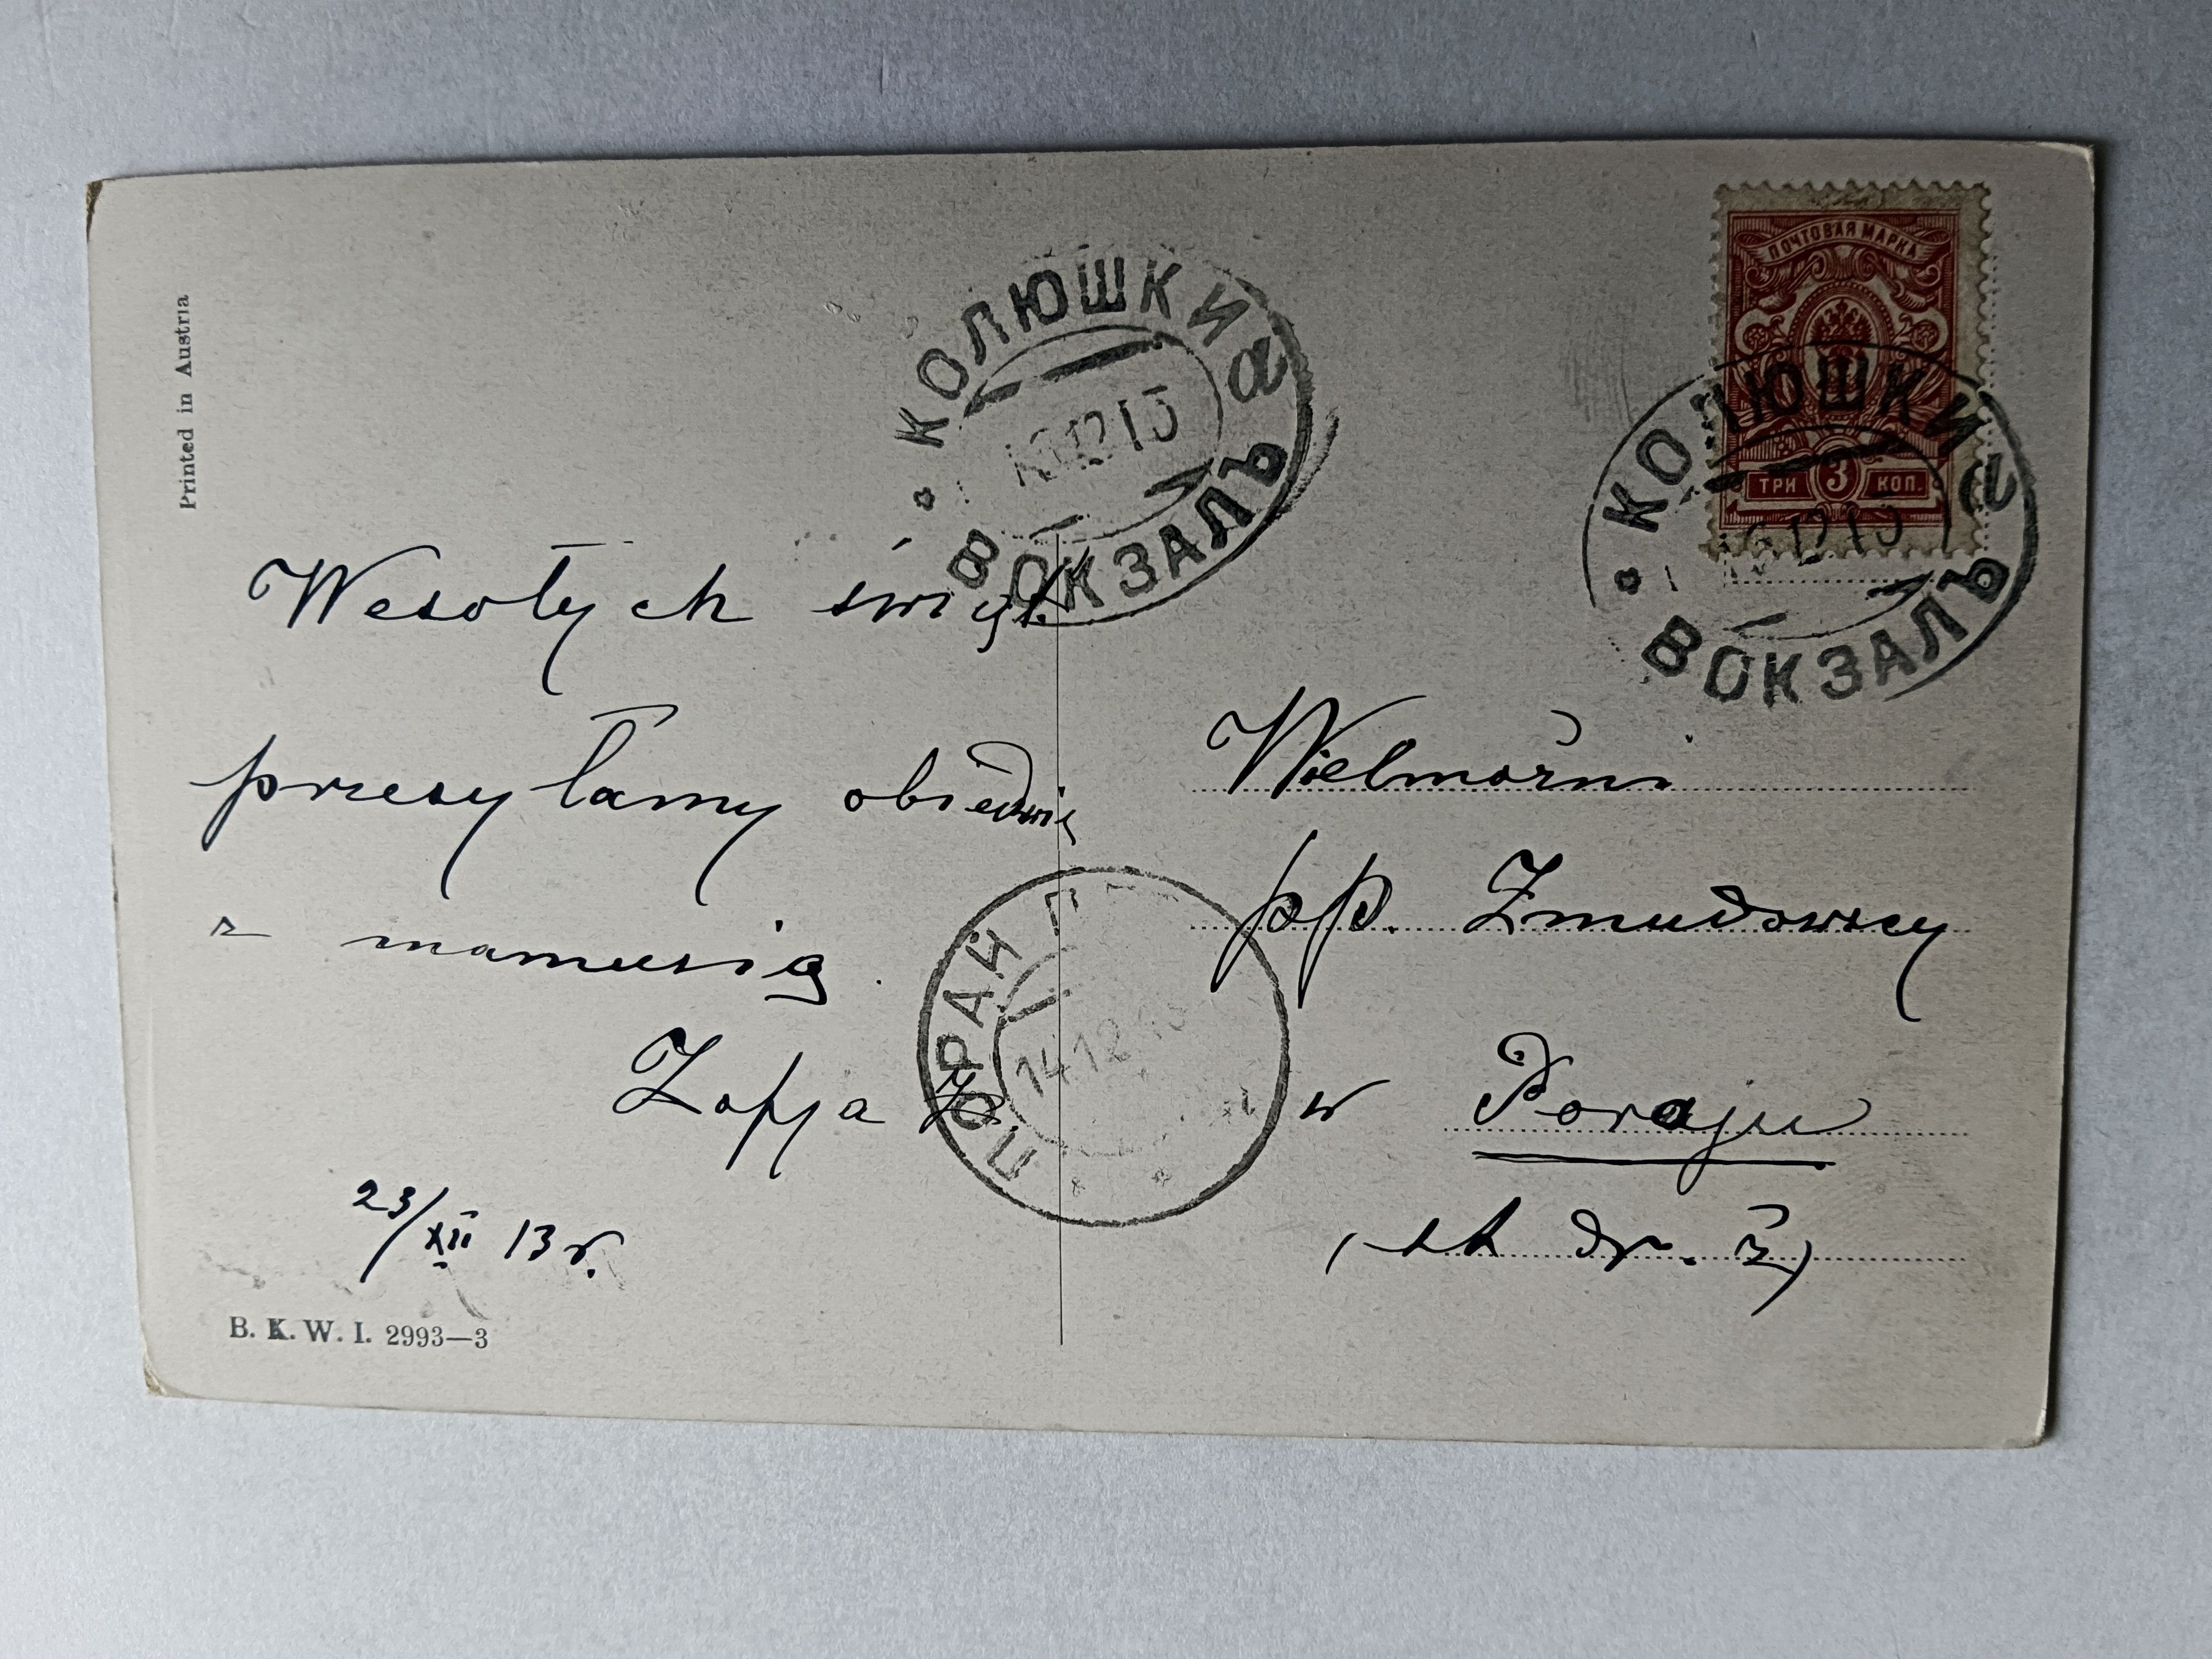 Printed in Austria
ПОЧТОВАЯ МАРКА
3
ТРИ КОП.
КОЛЮШКИ
а
12 13
ВОКЗАЛЪ
КОЛЮШКИ
а
12 13
ВОКЗАЛЪ
Wesołych świąt
przesyłamy obiedwie
z mamusią.
Zofja Ż.
23/XII 13 r.
B. K. W. I. 2993—3
ПОРАЙ П
14 12 13
Wielmożni
pp. Żmudowscy
w Poraju
dr. ż)